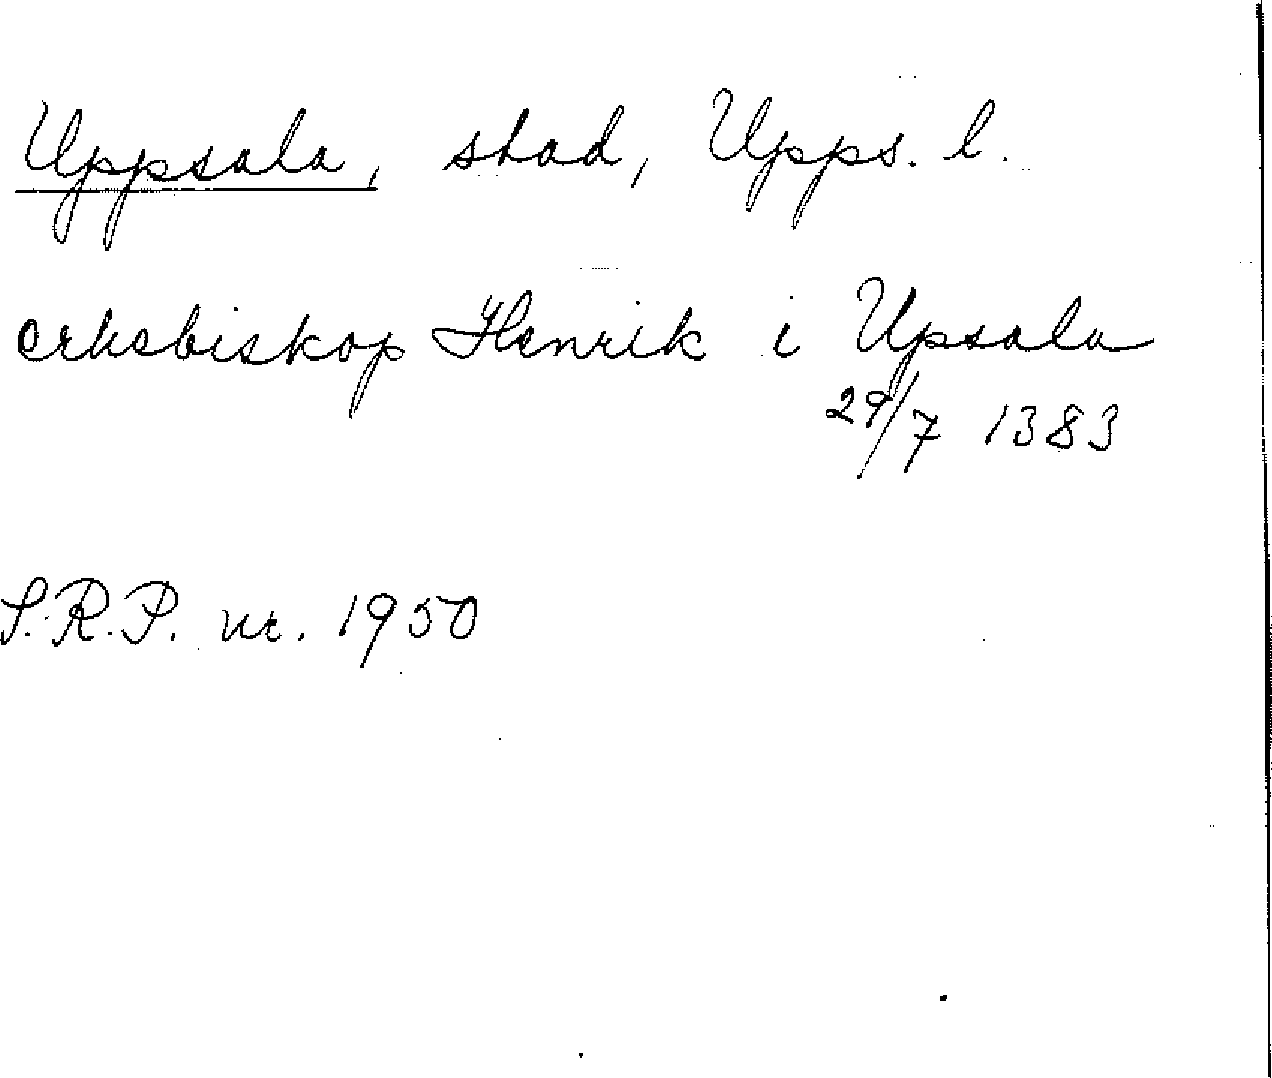 Uppsala, stad, Upps. l.
erkebiskop Henrik i Upsala
29/7 1383
S.R.P. nr. 1950